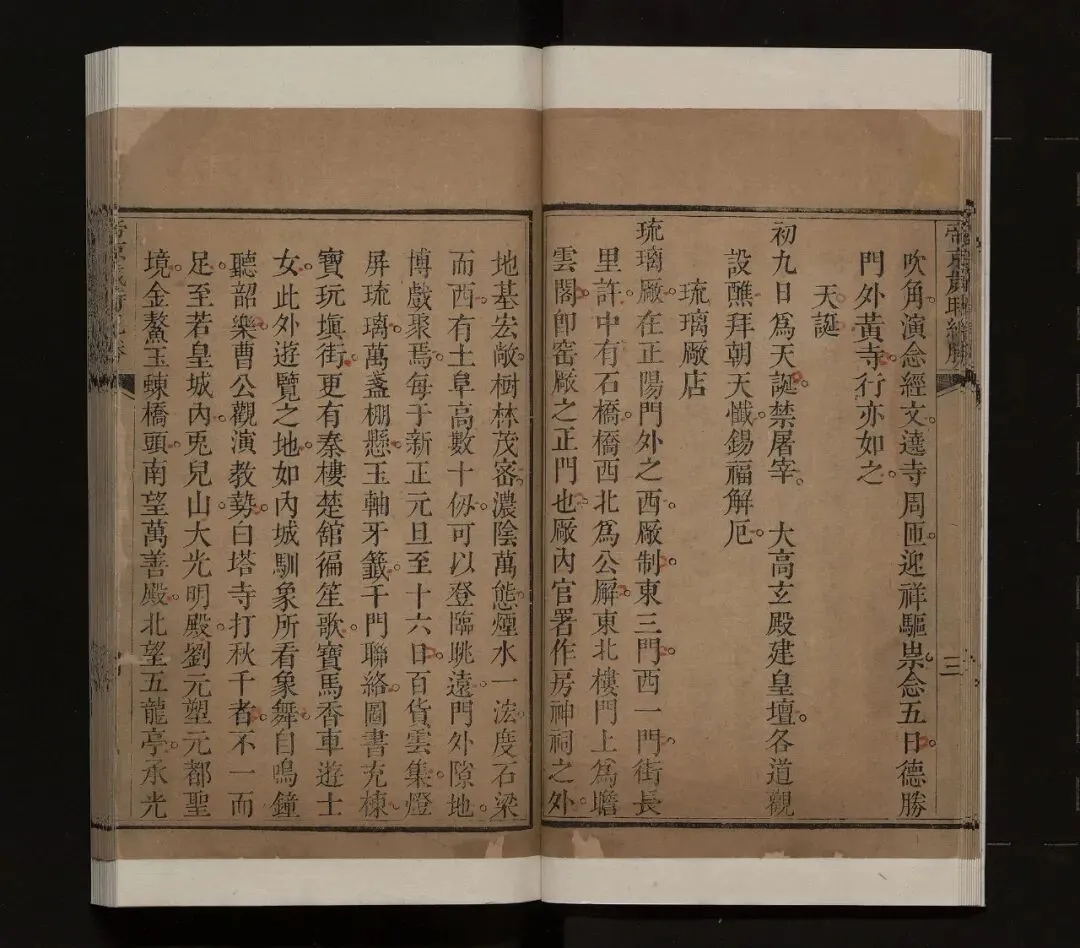 吹角演念經文遶寺周匝迎祥驅祟念五日德勝
門外黃寺行亦如之
天誕
初九日爲天誕禁屠宰 大高玄殿建皇壇各道觀
設醮拜朝天懺錫福解厄
琉璃廠店
琉璃廠在正陽門外之西廠制東三門西一門街長
里許中有石橋橋西北爲公廨東北樓門上爲瞻
雲閣卽窑廠之正門也廠內官署作房神祠之外
地基宏敞樹林茂密濃陰萬態煙水一泓度石梁
而西有土阜高數十仭可以登臨眺遠門外隙地
博戲聚焉每于新正元旦至十六日百貨雲集燈
屏琉璃萬盞棚懸玉軸牙籤千門聯絡圖書充棟
寶玩塡街更有秦樓楚舘徧笙歌寶馬香車遊士
女此外遊覽之地如內城馴象所看象舞自鳴鐘
聽韶樂曹公觀演教勢白塔寺打秋千者不一而
足至若皇城內兎兒山大光明殿劉元塑元都聖
境金鰲玉蝀橋頭南望萬善殿北望五龍亭承光